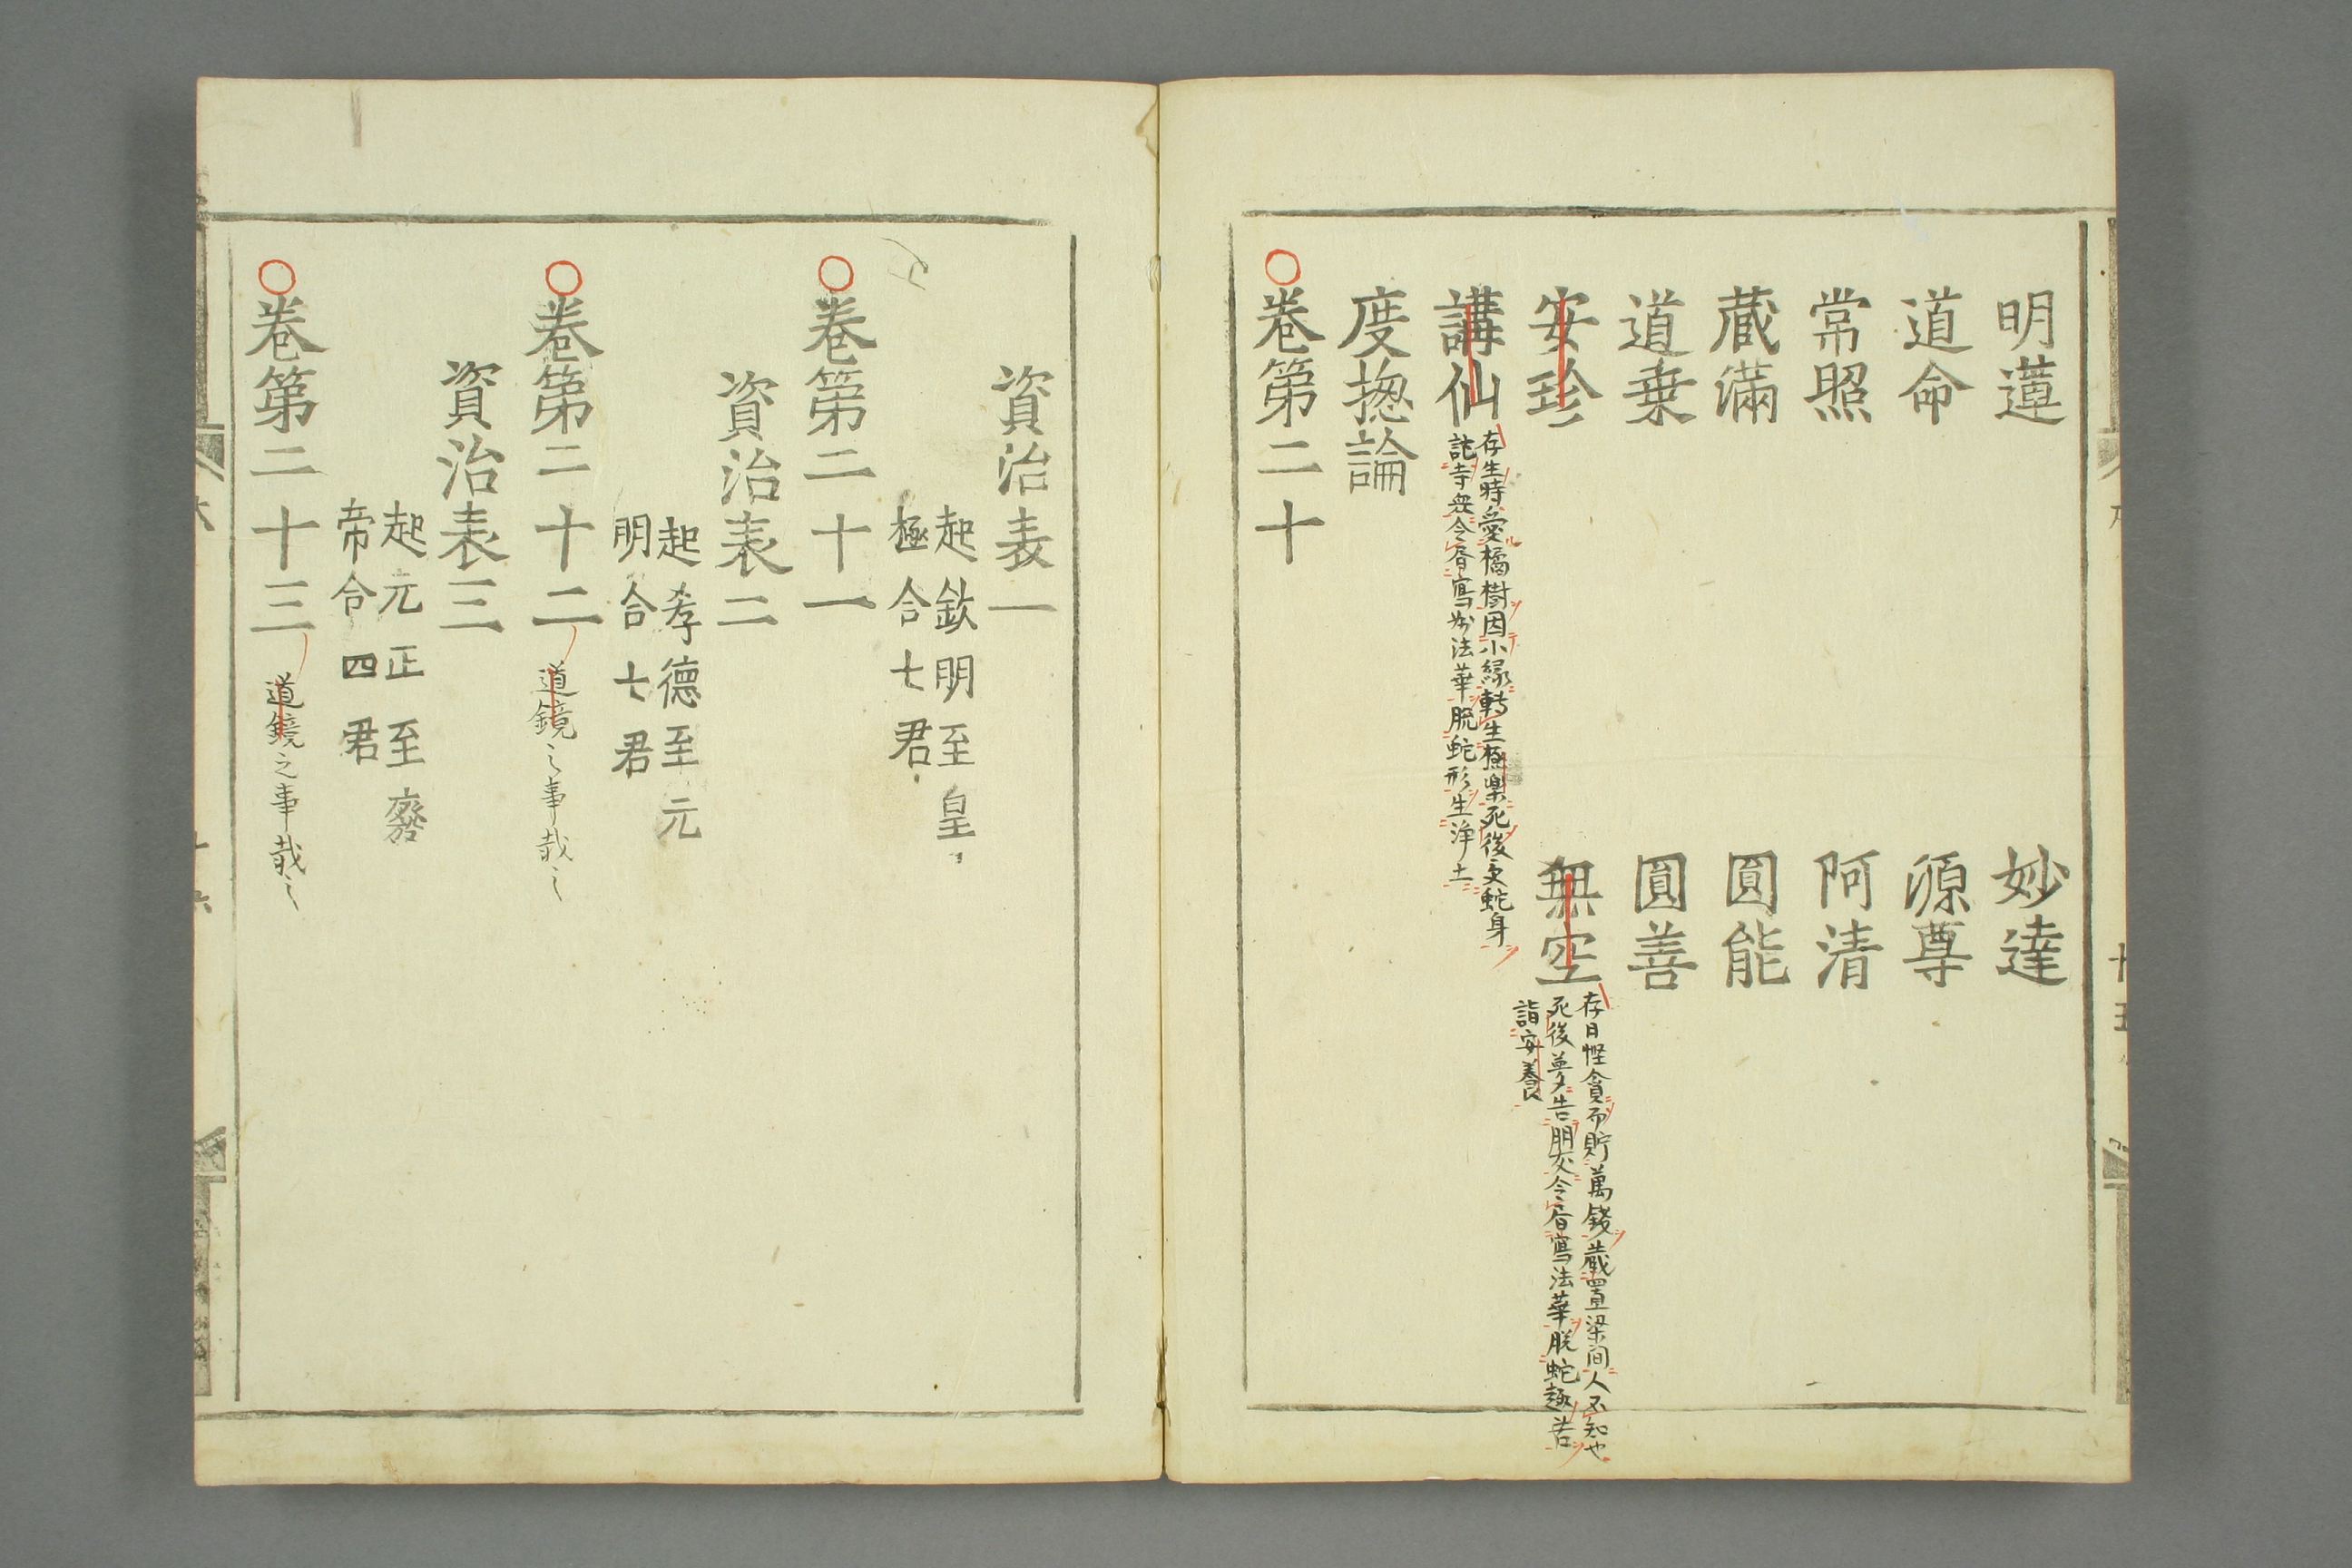 明蓮
妙達
道命
源尊
常照
阿清
蔵滿
圓能
道乗
圓善
安珍
無空
存日慳貪而貯萬銭蔵置梁间人不知也
死後夢告朋友令書寫法華脱蛇趣苦
詣安養
講仙
存生時愛橘樹因小縁轉生極楽死後受蛇身
託寺衆令書寫妙法華脱蛇形生浄土
度揔論
巻第二十
資治表一
起欽明至皇
極合七君
巻第二十一
資治表二
起孝德至元
明合七君
巻第二十二
道鏡之事哉之
資治表三
起元正至廢
帝合四君
巻第二十三
道鏡之事哉之